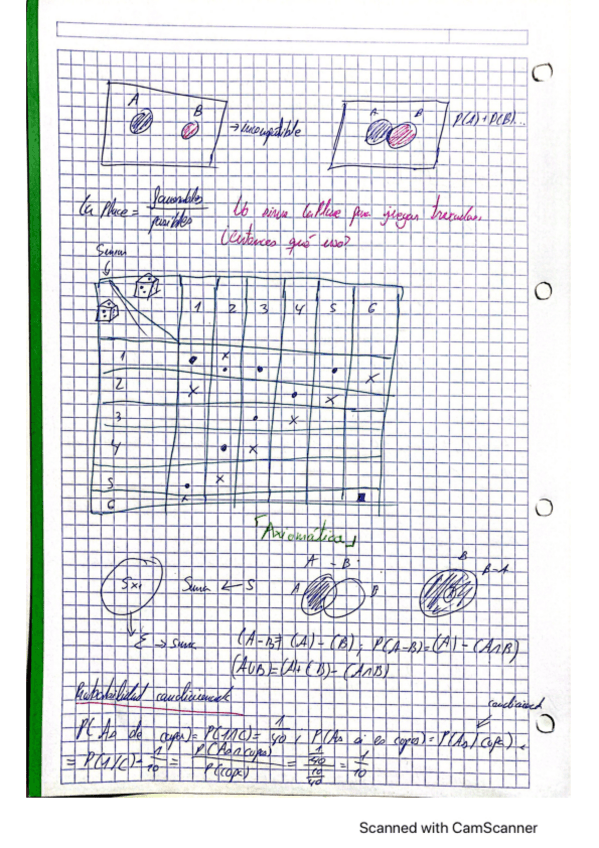 A B A B P(A)+P(B)...
→ incompatible
La Place = favorables / posibles No sirve LaPlace para juegos trucados,
¿Entonces qué uso?
Suma
1 2 3 4 5 6
1
2
3
4
5
6
「Axiomática」
A - B B
Sxi Suma ← S A B B-A
Σ → suma (A-B)≠(A)-(B); P(A-B)=(A)-(A∩B)
(A∪B)=(A+(B)-(A∩B)
Probabilidad condicionada
condicionada
P(As de copas)=P(1∩C)=1/40, P(As si es copas)=P(As/copa),
=P(1/C)=1/10=P(As∩copa)/P(copa)=1/40/10/40=1/10
Scanned with CamScanner